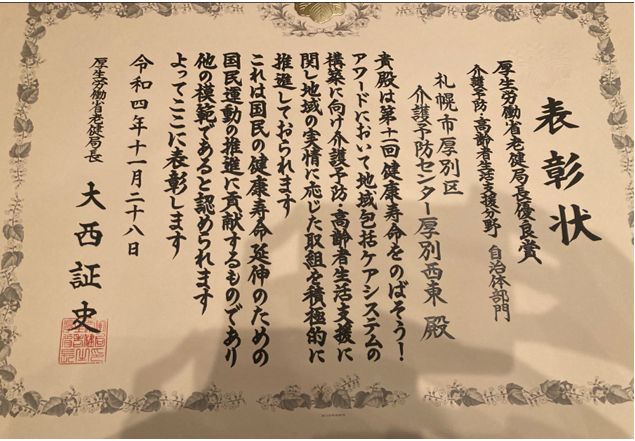 表彰状
厚生労働省老健局長優良賞
介護予防・高齢者生活支援分野 自治体部門
札幌市厚別区
介護予防センター厚別西東 殿
貴殿は第十一回健康寿命をのばそう!
アワードにおいて地域包括ケアシステムの
構築に向け介護予防・高齢者生活支援に
関し地域の実情に応じた取組を積極的に
推進しておられます
これは国民の健康寿命延伸のための
国民運動の推進に貢献するものであり
他の模範であると認められます
よってここに表彰します
令和四年十一月二十八日
厚生労働省老健局長 大西証史